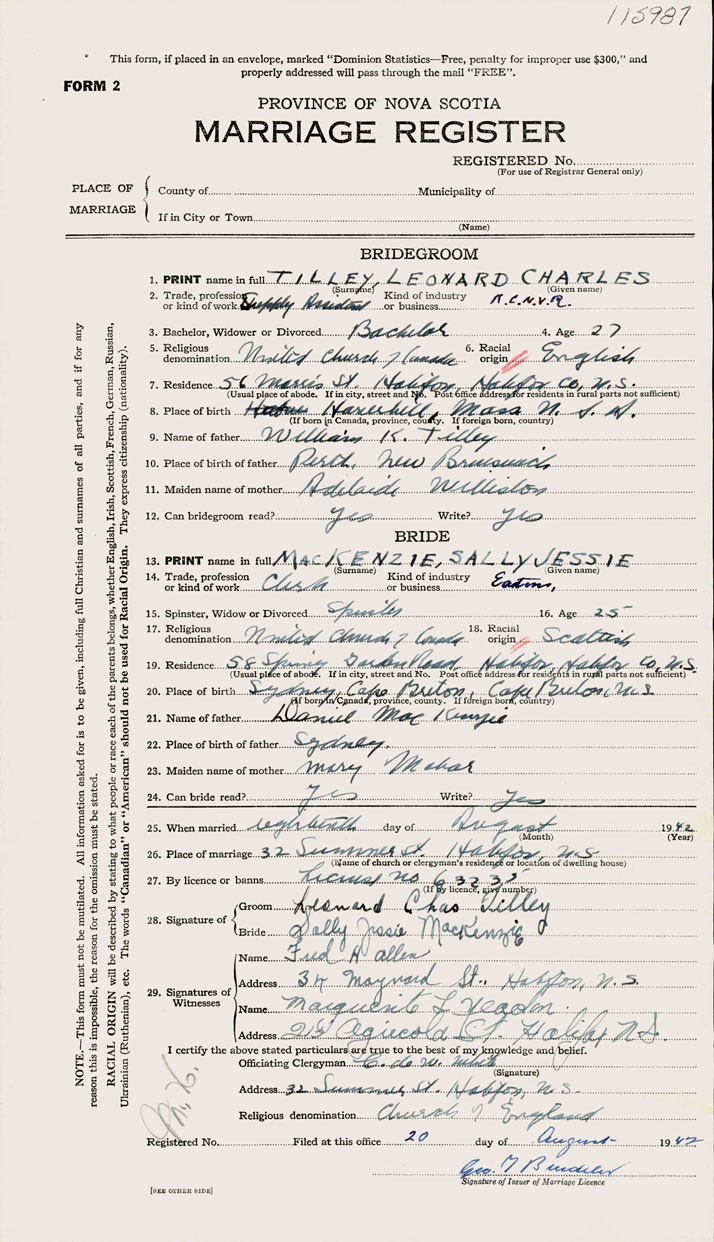 115987
This form, if placed in an envelope, marked "Dominion Statistics—Free, penalty for improper use $300," and
properly addressed will pass through the mail "FREE".
FORM 2
PROVINCE OF NOVA SCOTIA
MARRIAGE REGISTER
REGISTERED No.
(For use of Registrar General only)
PLACE OF MARRIAGE
County of Municipality of
If in City or Town
(Name)
BRIDEGROOM
1. PRINT name in full TILLEY, LEONARD CHARLES
(Surname) (Given name)
2. Trade, profession or kind of work Supply Assistant Kind of industry or business R.C.N.V.R.
3. Bachelor, Widower or Divorced Bachelor 4. Age 27
5. Religious denomination United Church of Canada 6. Racial origin English
7. Residence 56 Morris St. Halifax, Halifax Co, N.S.
(Usual place of abode. If in city, street and No. Post office address for residents in rural parts not sufficient)
8. Place of birth Haverhill, Mass U.S.A.
(If born in Canada, province, county. If foreign born, country)
9. Name of father William K. Tilley
10. Place of birth of father Perth, New Brunswick
11. Maiden name of mother Adelaide Williston
12. Can bridegroom read? Yes Write? Yes
BRIDE
13. PRINT name in full MACKENZIE, SALLY JESSIE
(Surname) (Given name)
14. Trade, profession or kind of work Clerk Kind of industry or business Eatons,
15. Spinster, Widow or Divorced Spinster 16. Age 25
17. Religious denomination United Church of Canada 18. Racial origin Scottish
19. Residence 58 Spring Garden Road, Halifax, Halifax Co, N.S.
(Usual place of abode. If in city, street and No. Post office address for residents in rural parts not sufficient)
20. Place of birth Sydney, Cape Breton, Cape Breton, N.S.
(If born in Canada, province, county. If foreign born, country)
21. Name of father Daniel MacKenzie
22. Place of birth of father Sydney.
23. Maiden name of mother Mary
24. Can bride read? Yes Write? Yes
25. When married eighteenth day of August 1942
(Month) (Year)
26. Place of marriage 32 Summer St. Halifax, N.S.
(Name of church or clergyman's residence or location of dwelling house)
27. By licence or banns License no 63235
(If by licence, give number)
28. Signature of
Groom Leonard Chas Tilley
Bride Sally Jessie MacKenzie
29. Signatures of Witnesses
Name Fred H Allen
Address 34 Maynard St., Halifax, N.S.
Name Marguerite L Yeadon
Address St. Halifax N.S.
I certify the above stated particulars are true to the best of my knowledge and belief.
Officiating Clergyman
(Signature)
Address 32 Summer St. Halifax, N.S.
Religious denomination Church of England
Registered No. Filed at this office 20 day of August 1942
Signature of Issuer of Marriage Licence
[SEE OTHER SIDE]
NOTE.—This form must not be mutilated. All information asked for is to be given, including full Christian and surnames of all parties, and if for any
reason this is impossible, the reason for the omission must be stated.
RACIAL ORIGIN will be described by stating to what people or race each of the parents belongs, whether English, Irish, Scottish, French, German, Russian,
Ukrainian (Ruthenian), etc. The words "Canadian" or "American" should not be used for Racial Origin. They express citizenship (nationality).